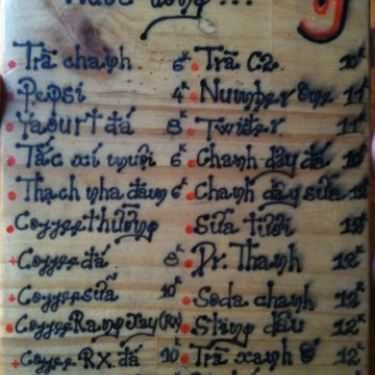 Trà chanh 6K
Pepsi 4K
Yaourt đá 8K
Tắc xí muội 6K
Thạch nha đam 6K
Coffee thường
Coffee đá 8K
Coffee sữa 10K
Coffee Rang Xay
Coffee RX đá 10K
Trà C2 10K
Number One 11K
Twister 11K
Chanh dây đá 10K
Chanh dây sữa
Sữa tươi
Dr. Thanh 12K
Soda chanh 12K
Sting dâu 12K
Trà xanh 0° 12K